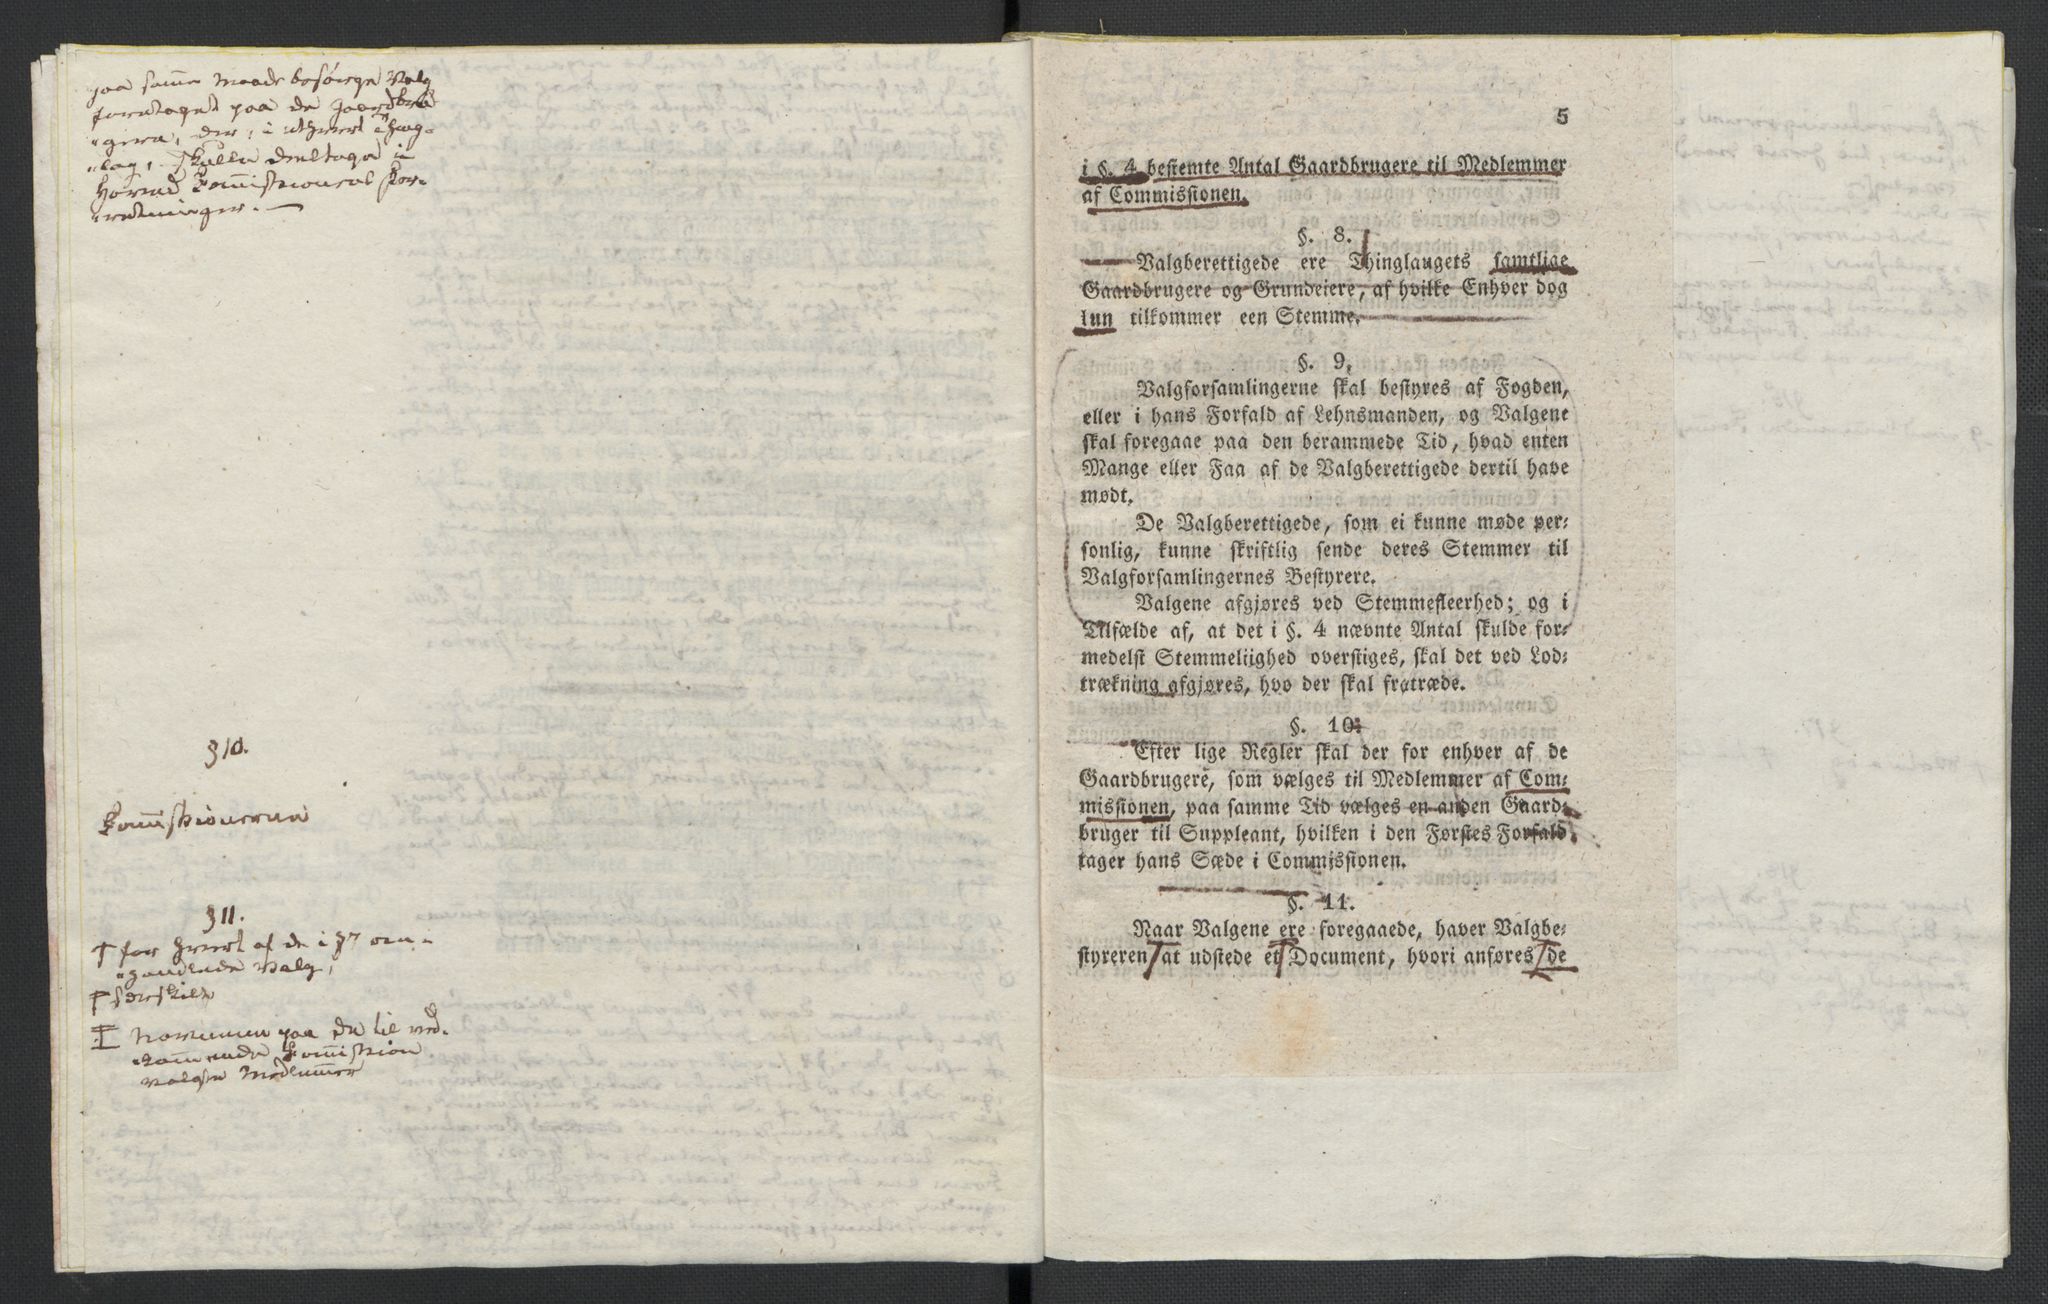 paa samme Maade besørge Valg
foretaget paa de Gaardbru
"gere, der, i ethvert Thing-
"lag, skulle deeltage i
Commissionens For-
"retninger. —
§10.
Commissionerne
§11.
for hvert af de i §7 om-
"handlende Valg,
særskilt
Navnene paa de til ved-
"kommende Commission
valgte Medlemmer
5
i §. 4 bestemte Antal Gaardbrugere til Medlemmer
af Commissionen.
§. 8.
Valgberettigede ere Thinglaugets samtlige
Gaardbrugere og Grundeiere, af hvilke Enhver dog
kun tilkommer een Stemme.
§. 9.
Valgforsamlingerne skal bestyres af Fogden,
eller i hans Forfald af Lehnsmanden, og Valgene
skal foregaae paa den berammede Tid, hvad enten
Mange eller Faa af de Valgberettigede dertil have
mødt.
De Valgberettigede, som ei kunne møde per-
sonlig, kunne skriftlig sende deres Stemmer til
Valgforsamlingernes Bestyrere.
Valgene afgjøres ved Stemmefleerhed; og i
Tilfælde af, at det i §. 4 nævnte Antal skulde for-
medelst Stemmeliighed overstiges, skal det ved Lod-
trækning afgjøres, hvo der skal fratræde.
§. 10.
Efter lige Regler skal der for enhver af de
Gaardbrugere, som vælges til Medlemmer af Com-
missionen, paa samme Tid vælges en anden Gaard-
bruger til Suppleant, hvilken i den Førstes Forfald
tager hans Sæde i Commissionen.
§. 11.
Naar Valgene ere foregaaede, haver Valgbe-
styreren at udstede et Document, hvori anføres de